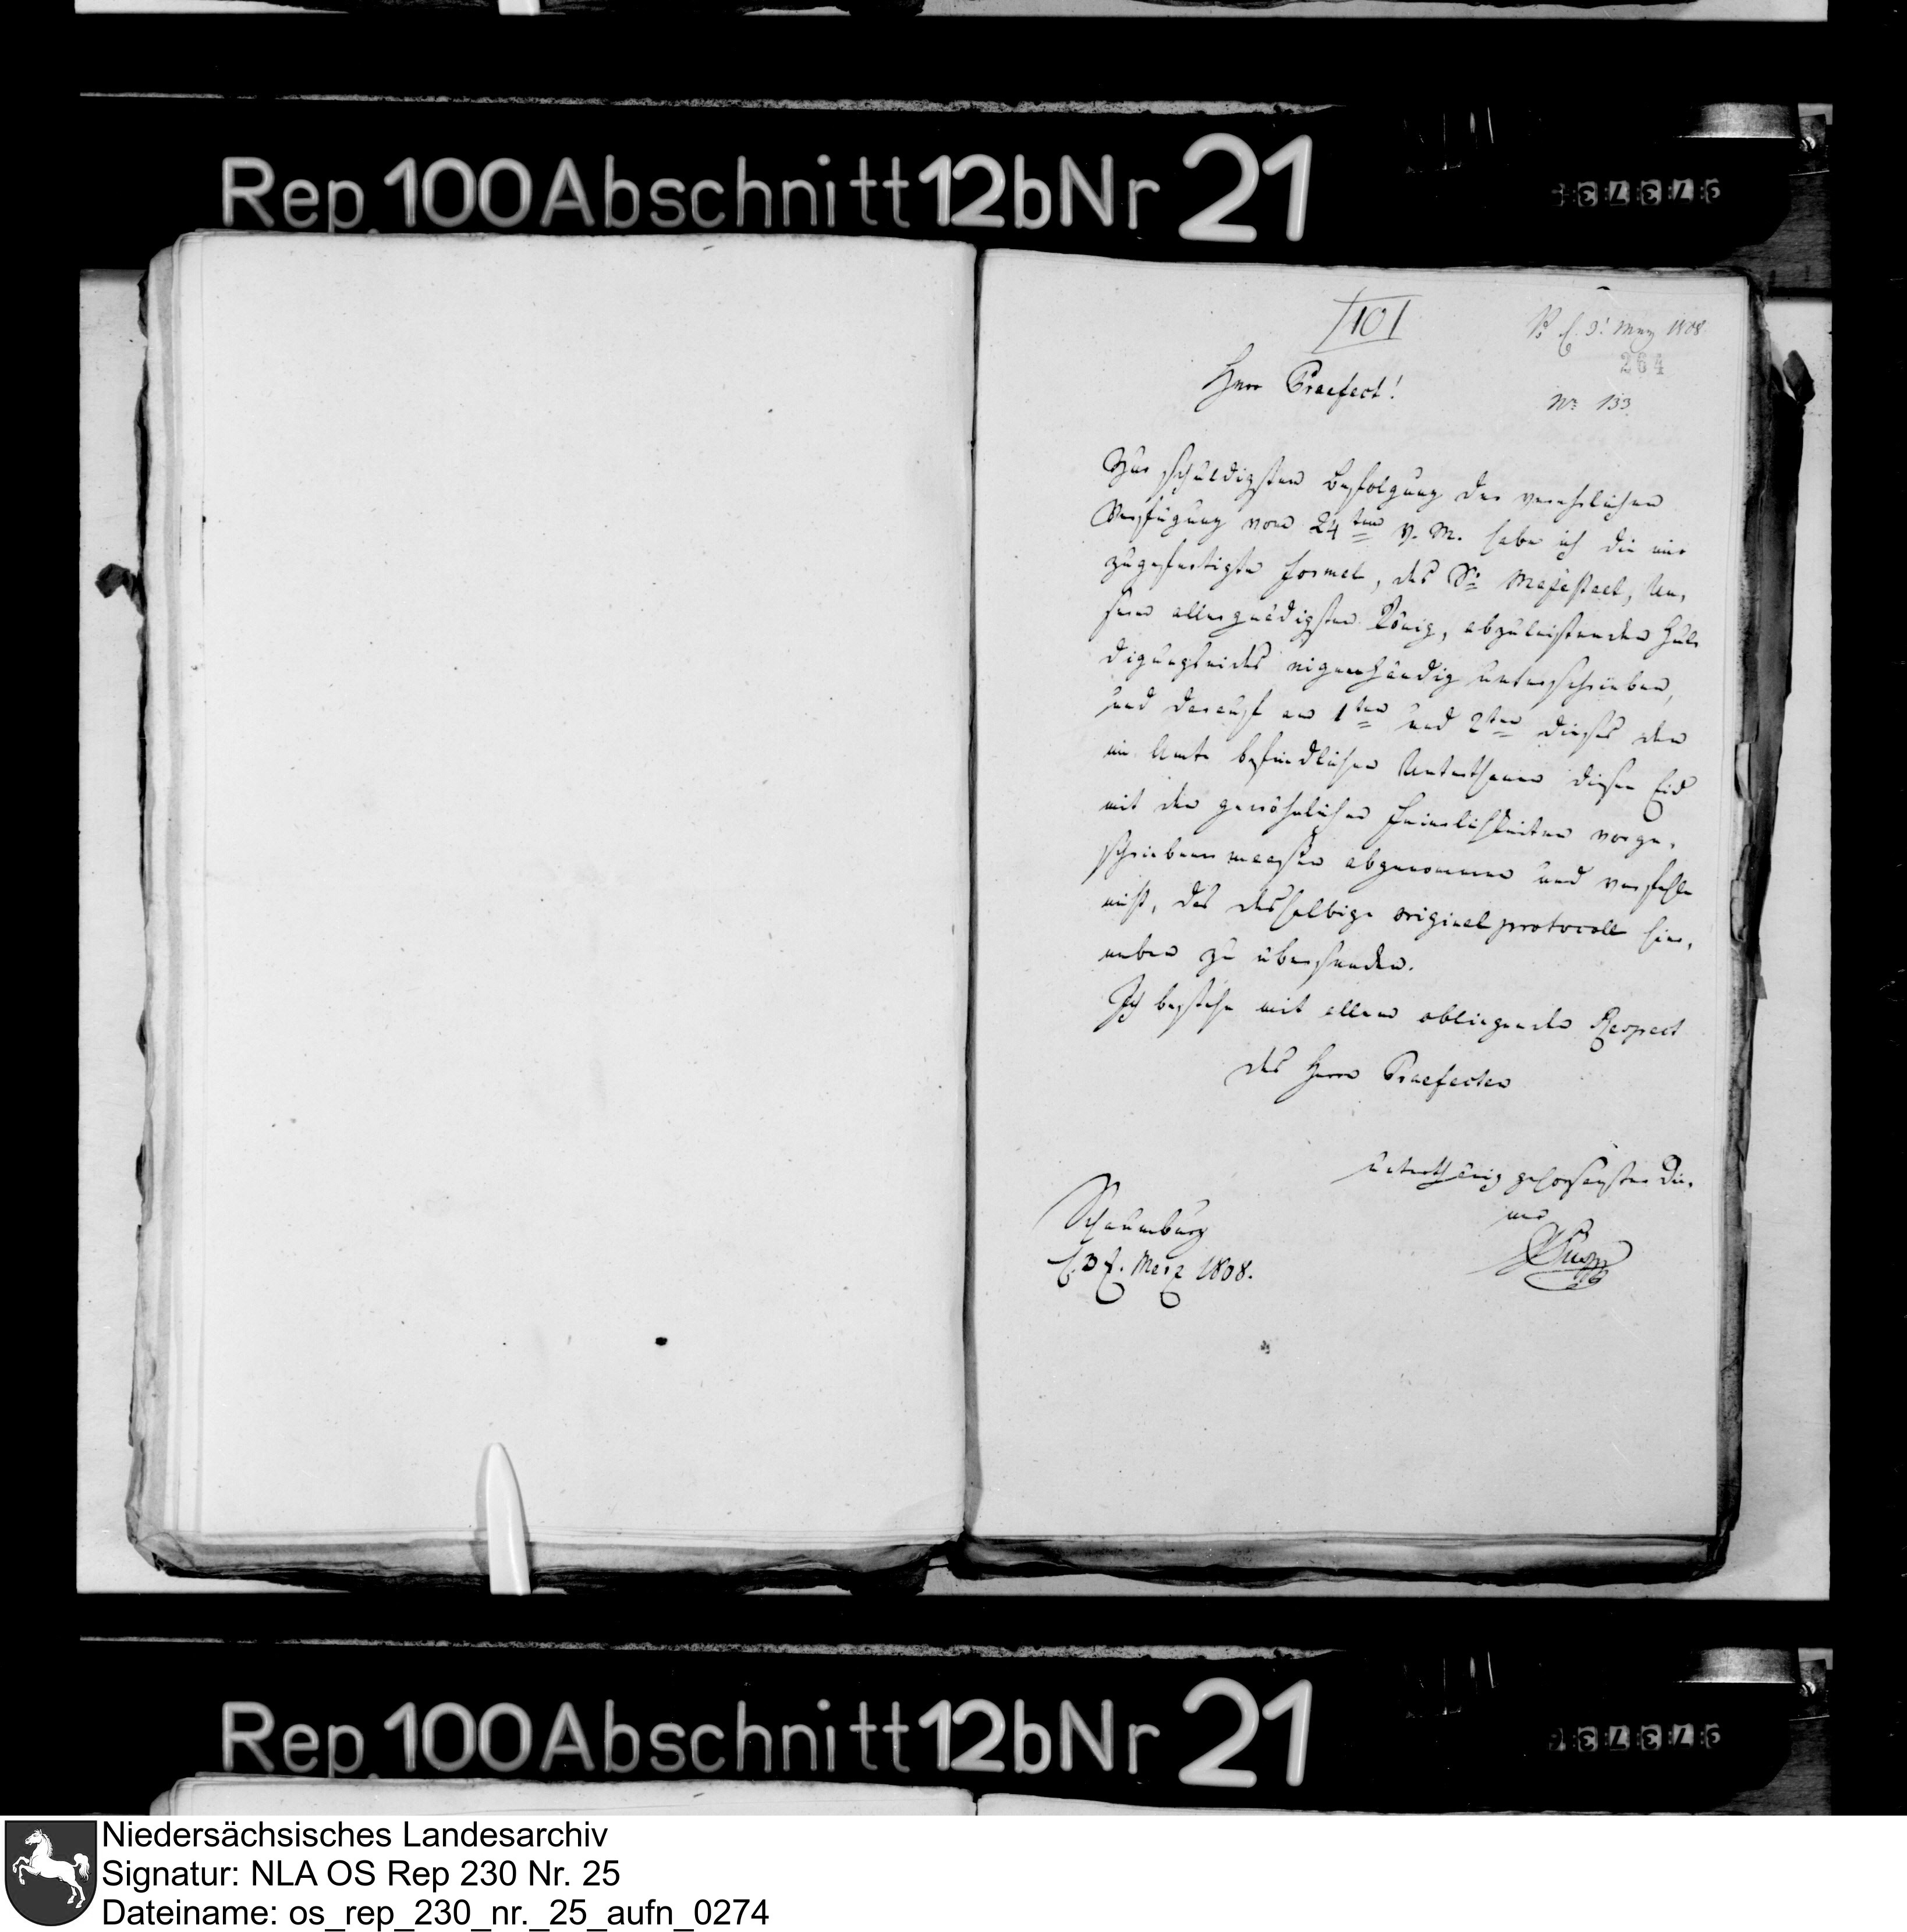 Rep. 100 Abschnitt 12b Nr 21
101
d. 9t Merz 1808
264
Nr. 133
Herr Praefect!
Zur schuldigsten Befolgung der verehrlichen
Verfügung vom 24ten v. M. habe ich die mir
zugefertigte Formel, des Sr Majestaet, Un,
serm allergnädigsten König, abzuleistenden Hul,
digungseides eigenhändig unterschrieben,
und darauf am 1ten und 2ten dieses den
im Amte befindlichen Unterthanen diesen Eid
mit den gewöhnlichen Feierlichkeiten vorge,
schriebenermaaßen abgenommen und verfehle
nicht, das desfalsige original protocoll hier,
neben zu übersenden.
Ich bestehe mit allem obliegenden Respect
des Herrn Praefecten
unterthänig gehorsamster Die,
ner
Schaumburg
d. 3 t. Merz 1808.
Rep. 100 Abschnitt 12b Nr 21
Niedersächsisches Landesarchiv
Signatur: NLA OS Rep 230 Nr. 25
Dateiname: os_rep_230_nr._25_aufn_0274